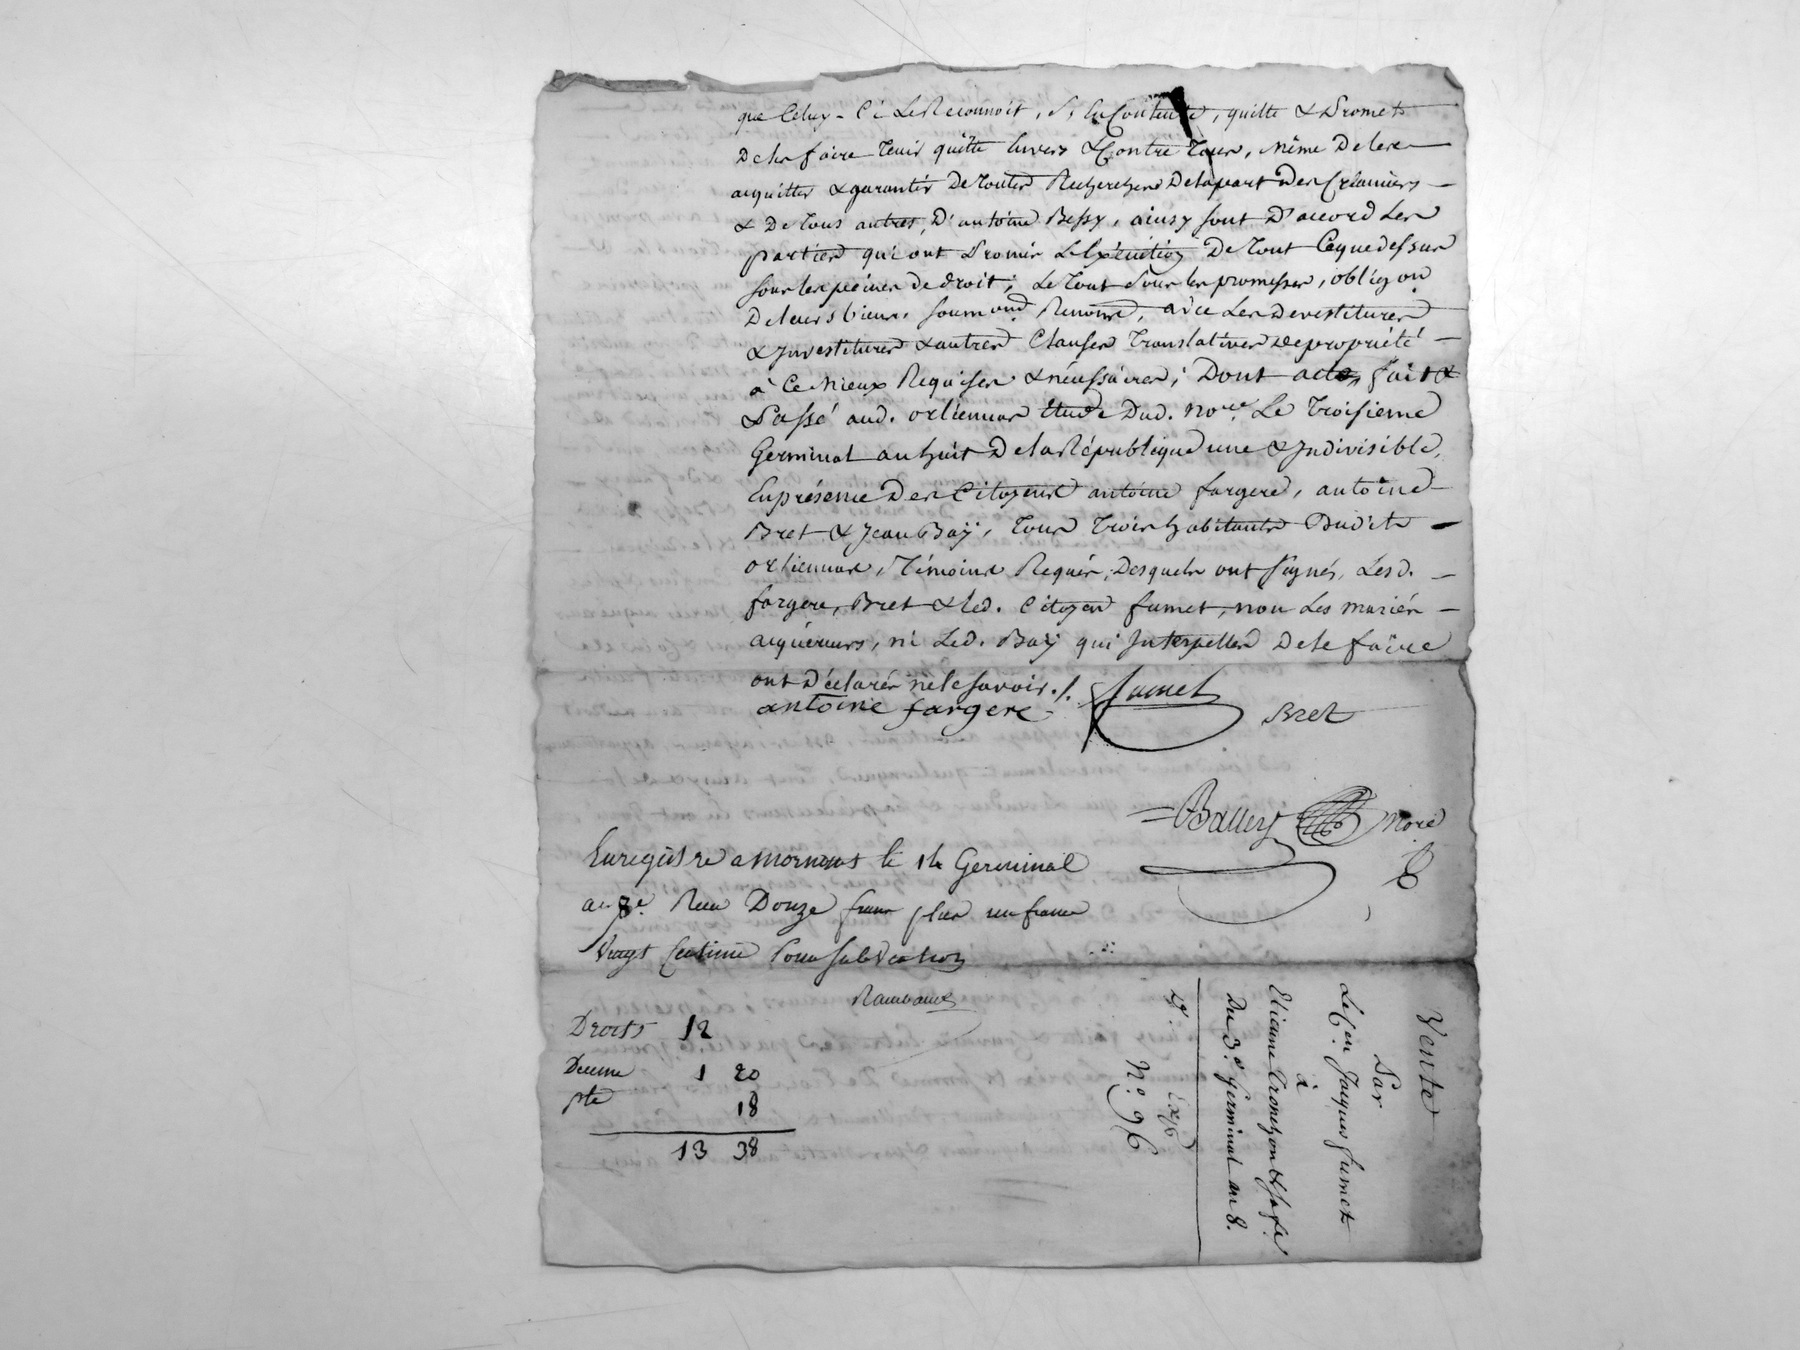 que Celuy-Ci Le Reconnoit, S'en Contente, quitte & Promets
De les faire Tenir quitte Envers & Contre Tous, même De les
acquitter & garantir De Toutes Recherches De la part Des Créanciers
& De Tous autres, D'antoine Bessy, ainsy sont D'accord Les
parties qui ont Promis L'Exécution De Tout Ceque dessus
sous les peines de droit; Le Tout sous les promesses, obligon
De leurs biens, soumond Renond, avec Les Devestitures
& Investitures & autres Clauses Translatives de propriété
à Ce Mieux Requises & nécessaires; Dont acte, fait &
Passé aud. orliennas étude Dud. Nore Le Troisieme
Germinal an huit De la République une & Indivisible,
En présence Des Citoyens antoine fargere, antoine
Bret & Jean Baÿ, Tous Trois habitants Dudit
orliennas, Témoins Requis, Desquels ont signés, Lesd.
fargere, Bret & Led. Citoyen fumet, non Les mariés
acquéreurs, ni Led. Baÿ qui Interpellés De le faire
ont Déclarés ne le savoir./.
antoine fargere
fumet
Bret
Balley Nore
Enregistré a mornant le 14 Germinal
an 8e. Reçu Douze francs plus un franc
Vingt Centime Pour subvention
Rambaud
Droits 12
Décime 1 20
pte 18
13 38
Vente
Par
Le Cen. Jacques fumet
à
Etienne Cronchon & sa fe.
Du 3e. Germinal an 8.
Exp
No. 96